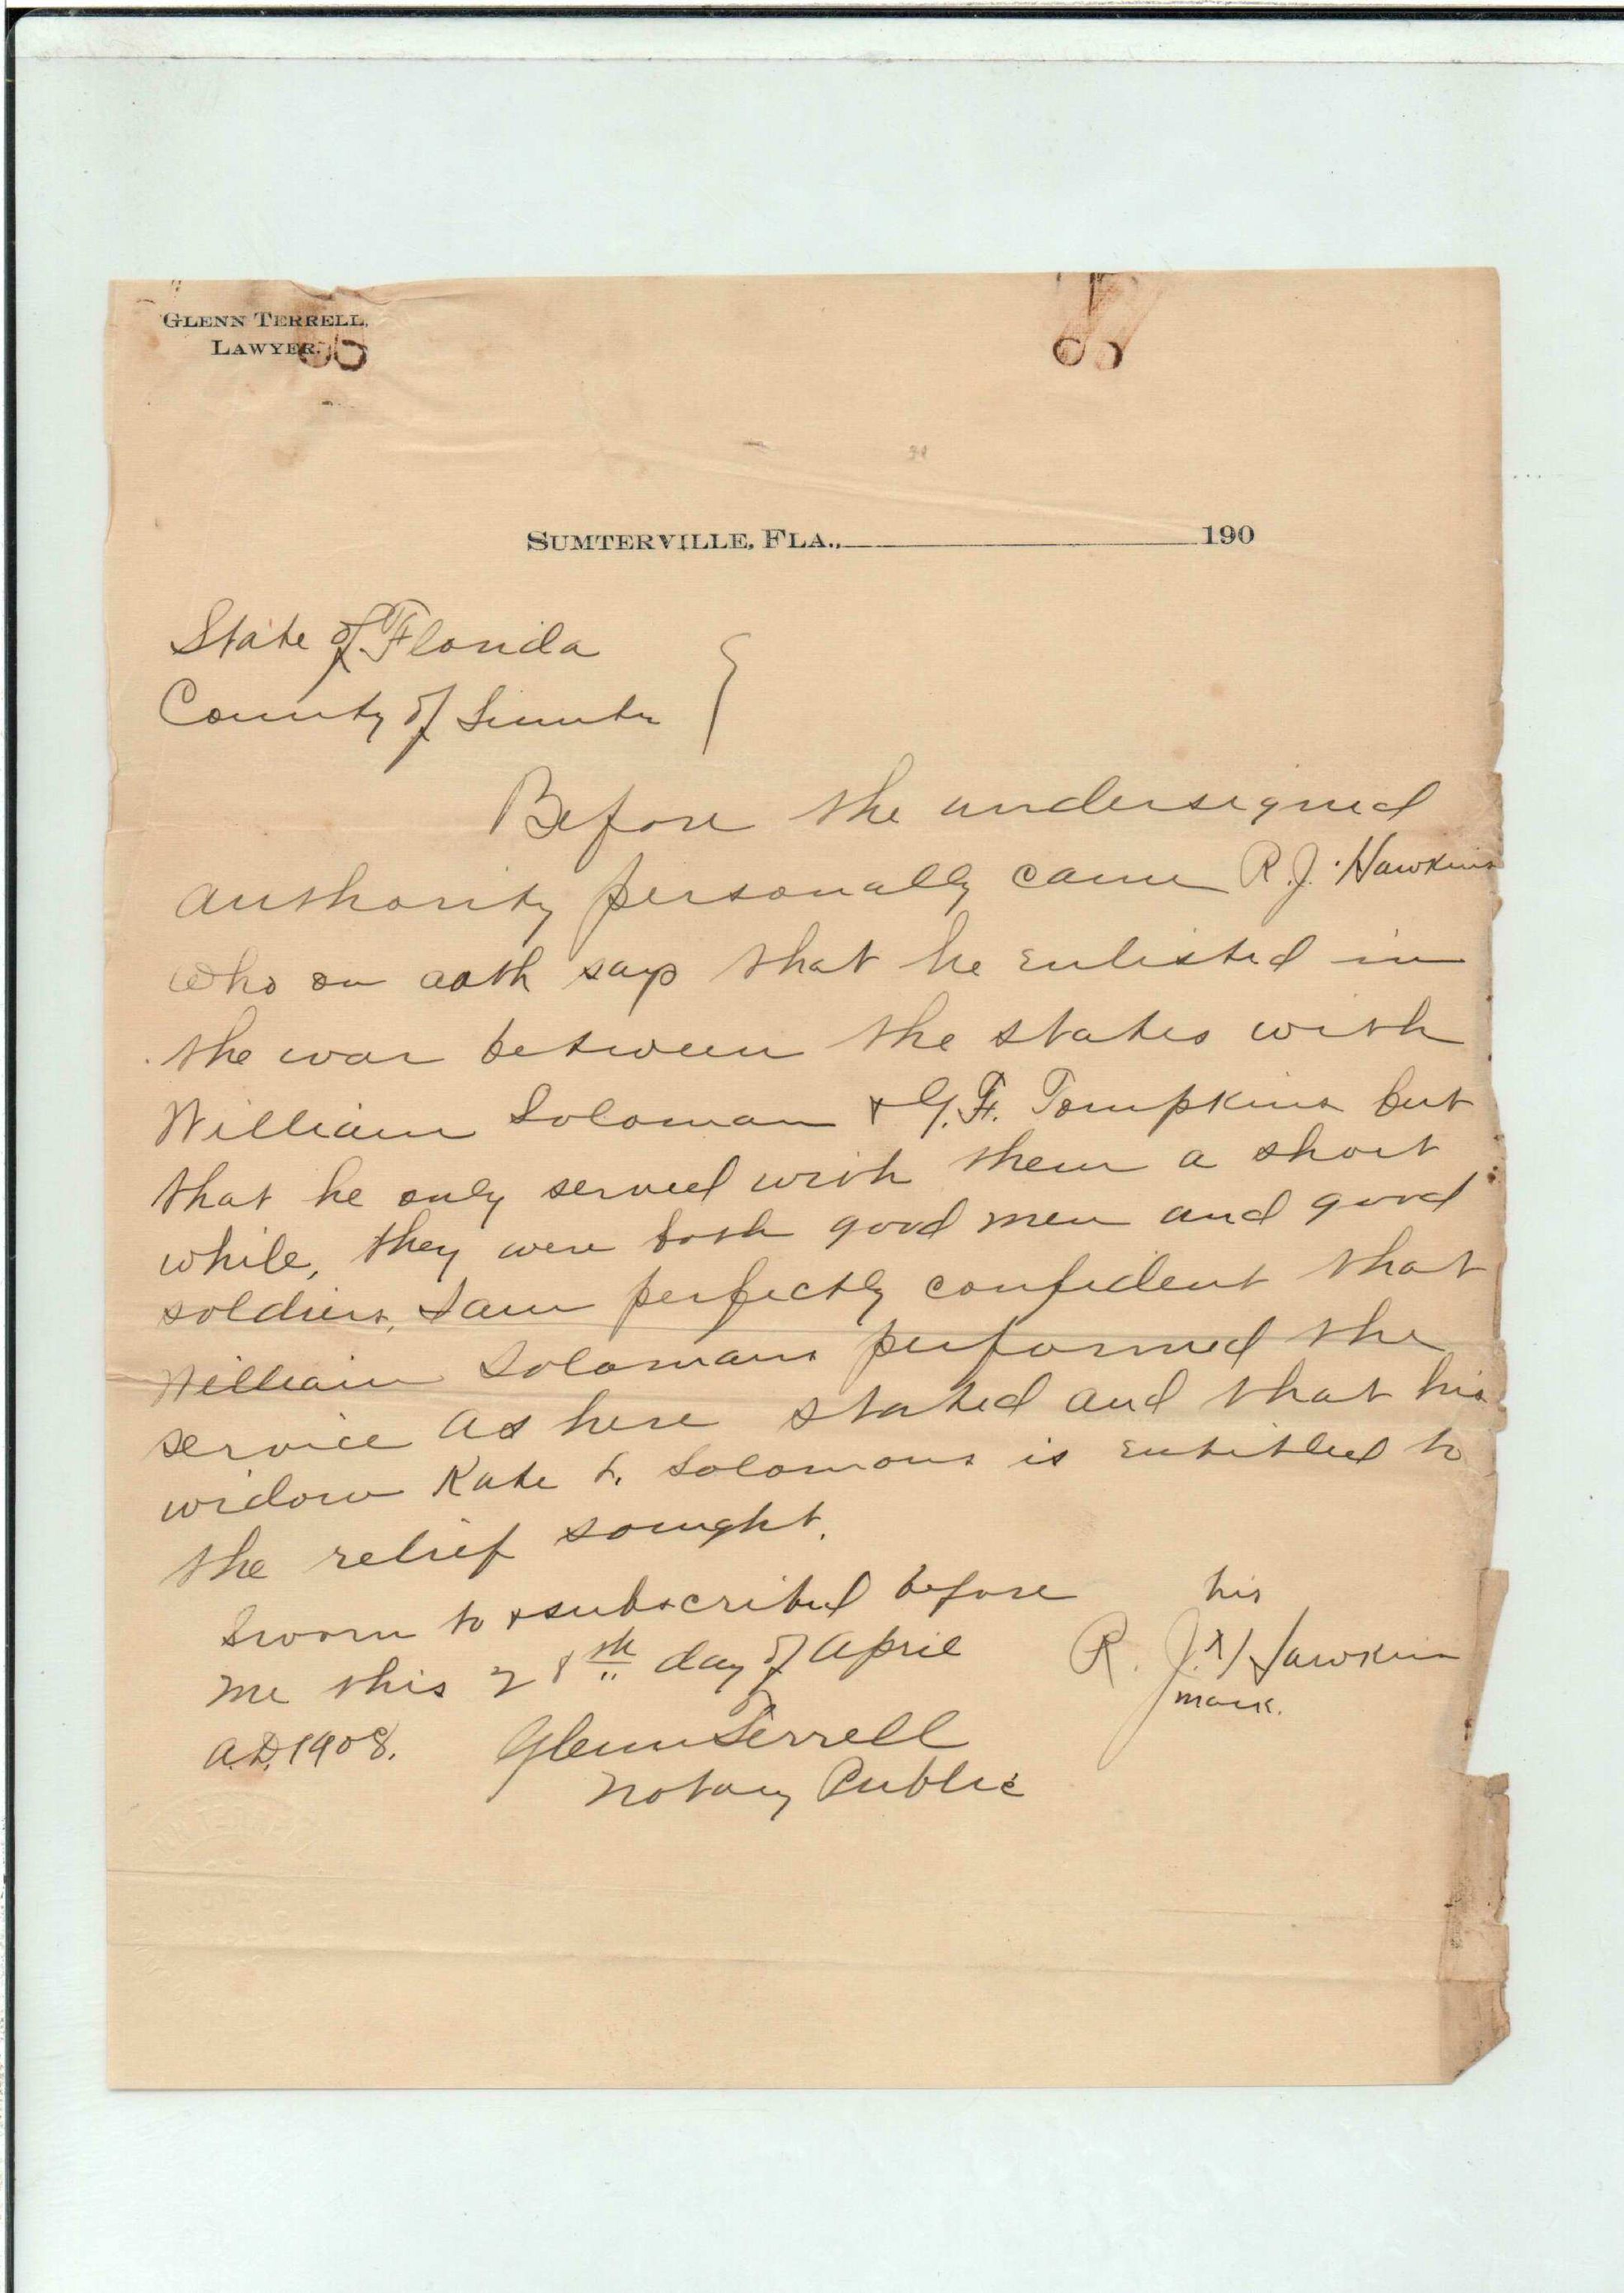 GLENN TERRELL,
LAWYER.
SUMTERVILLE, FLA., 190
State of Florida
County of Sumter
Before the undersigned
authority personally came R. J. Hawkins
who on oath says that he enlisted in
the war between the states with
William Soloman & G. F. Tompkins but
that he only served with them a short
while, they were both good men and good
soldiers, I am perfectly confident that
William Solomans performed the
service as here stated and that his
widow Kate L. Solomons is entitled to
the relief sought.
Sworn to & subscribed before
me this 28th day of April
A.D. 1908.
Glenn Terrell
Notary Public
his
R. J. x Hawkins
mark.